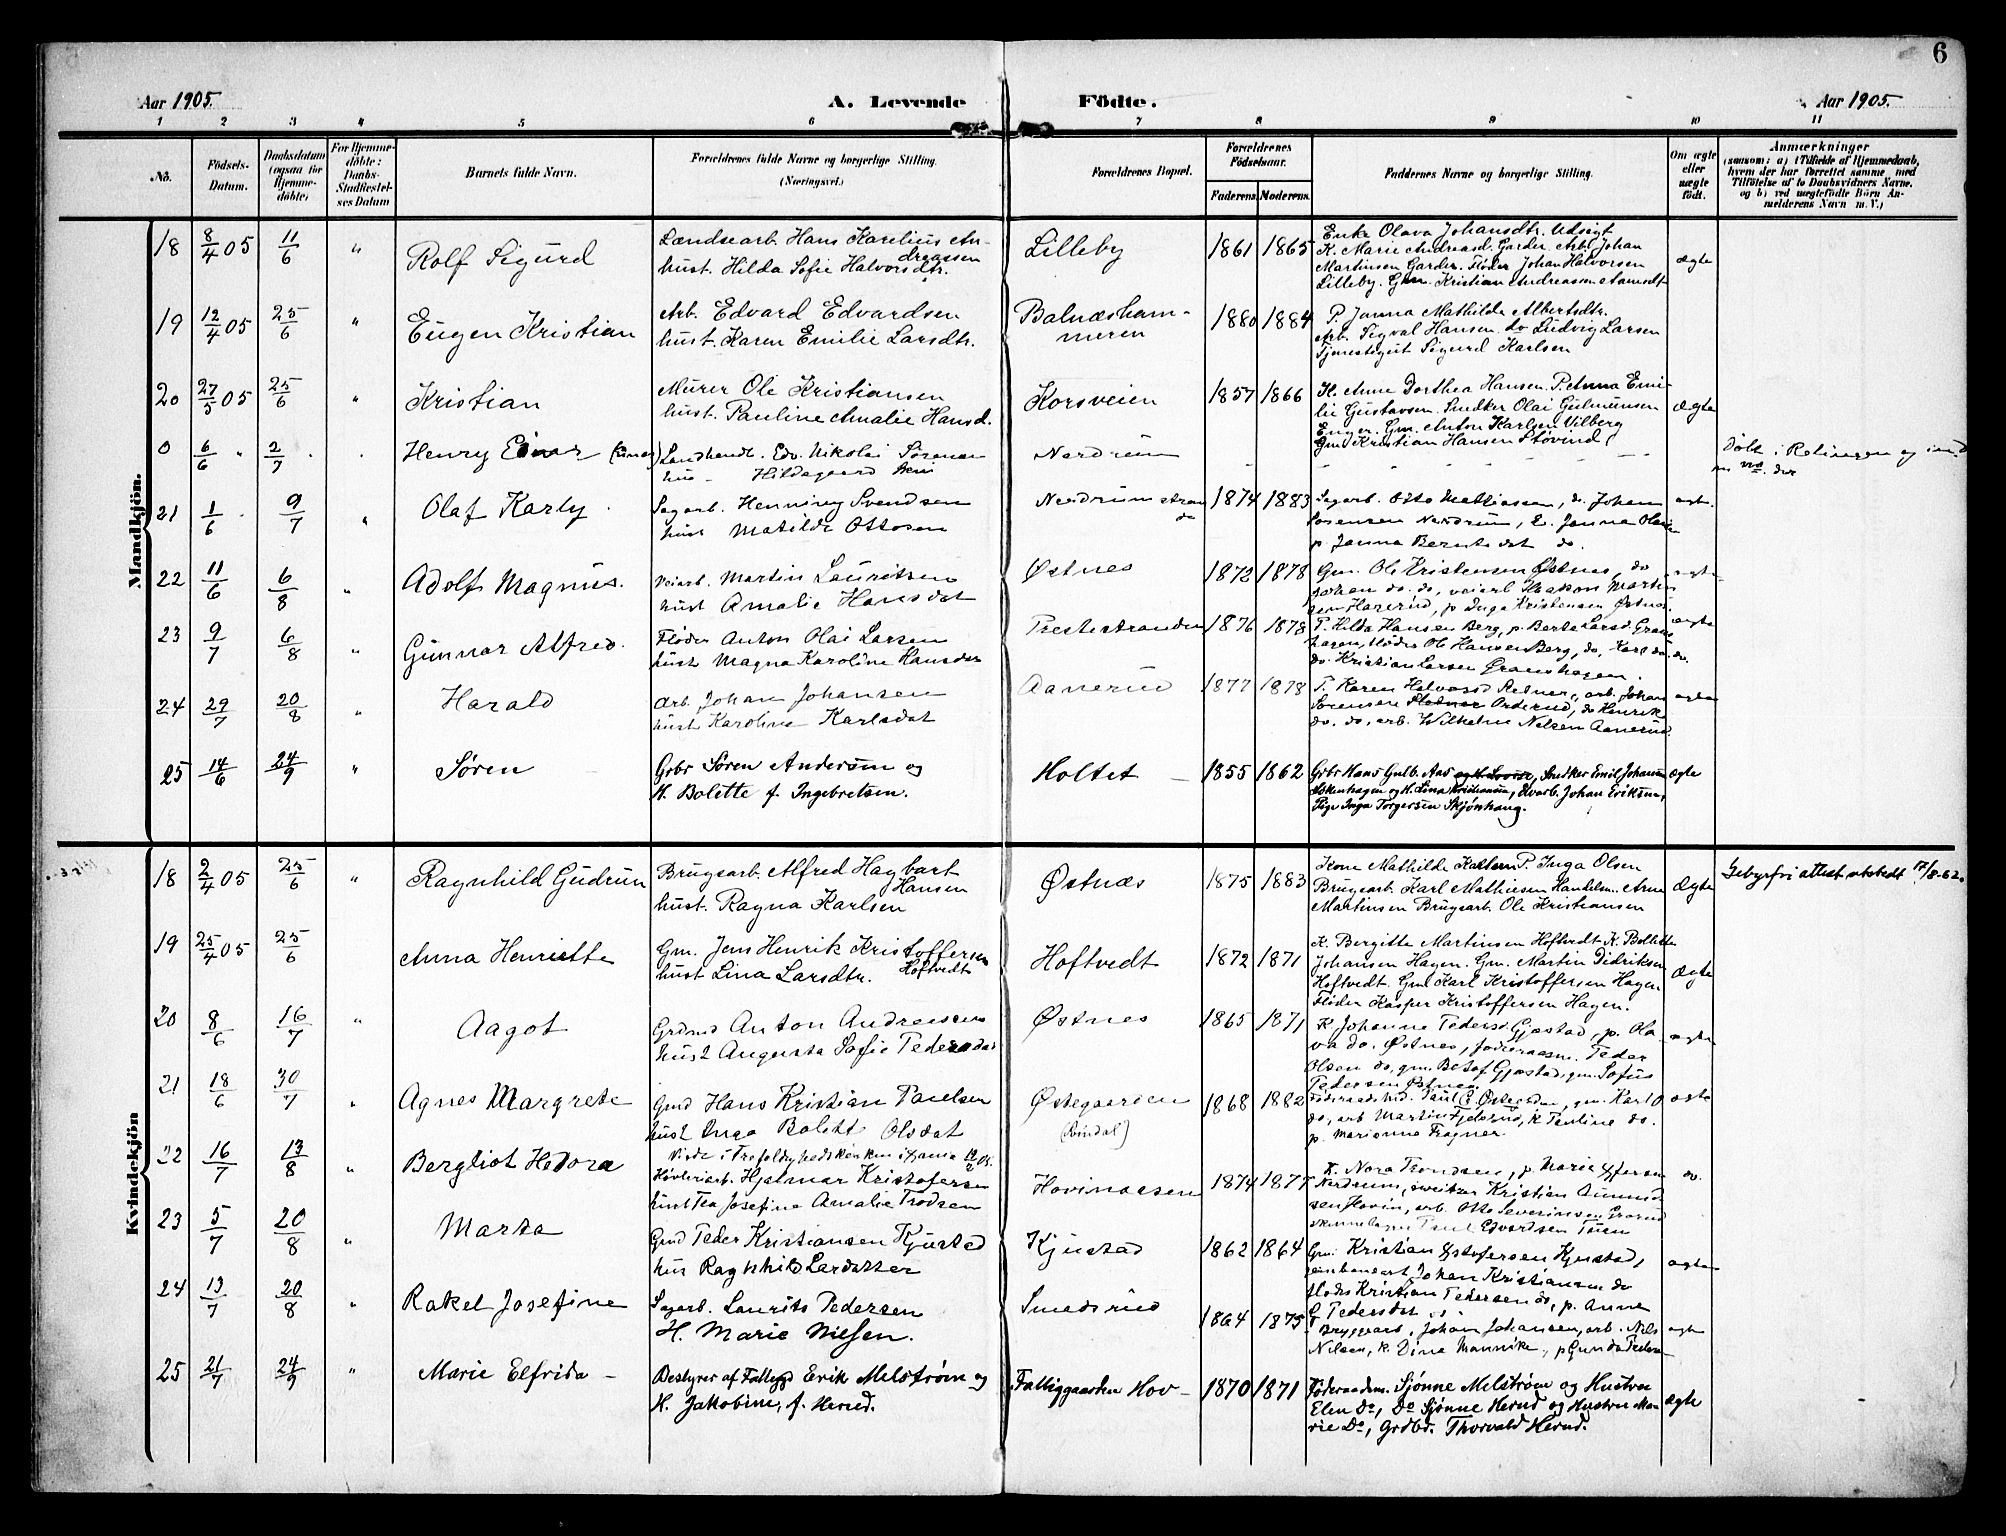 6
Aar 1905.
A. Levende
Födte.
Aar 1905.
1 2 3 4 5 6 7 8 9 10 11
No.
Födsels-
Datum.
Daabsdatum
(ogsaa for
Hjemme-
döbte)
For Hjemme-
döbte:
Daabs-
Stadfæstel-
ses Datum
Barnets fulde Navn.
Forældrenes fulde Navne og borgerlige Stilling.
(Næringsvei.)
Forældrenes Bopæl.
Forældrenes
Födselsaar.
Faderens.
Moderens.
Faddernes Navne og borgerlige Stilling.
Om ægte
eller
uægte
født.
Anmærkninger
(saasom: a) i Tilfælde af Hjemmedaab,
hvem der har forrettet samme, med
Tilföielse af to Daabsvidners Navne.
og b) ved uægtefödte Börn An-
melderens Navn m. V.)
Mandkjön.
18 8/4 05 11/6 " Rolf Sigurd
Lændsearb. Hans Karelius An-
dreassen
hust. Hilda Sofie Halvorsdtr.
Lilleby 1861 1865
Enke Olava Johansdtr. Udsigt
K. Marie Andreasd. Garder. Arb. Johan
Martinsen Garder. Fløder Johan Halvorsen
Lilleby. Gm. Kristian Andreassen Aamodt
ægte
19 12/4 05 25/6 " Eugen Kristian
Arb. Edvard Edvardsen
hust. Karen Emilie Larsdtr.
Balnæsham-
meren
1880 1884
P. Janna Mathilde Albertsdtr.
Arb. Sigval Hansen. do Ludvig Larsen
Tjenestegut Sigurd Karlsen
20 27/5 05 25/6 " Kristian
Murer Ole Kristiansen
hust. Pauline Amalie Hansd.
Korsveien 1857 1866
K. Anne Dorthea Hansen. P. Anna Emi-
lie Gustavsen. Snedker Olai Gulmunsen
Enger. Gm. Anton Karlsen Vilberg
Gm. Kristian Hansen Støvind
ægte
0 6/6 " 2/7 Henry Einar (Einar)
Landhandl. Edv. Nikolai Sørensen
hus - Hildegaard
Nordrum
Døbt i Retingen og
21 1/6 9/7 " Olaf Karly
Sagarb. Henning Svendsen
hust Matilde Ottosen
Nordrumstran
de
1874 1883
Sagarb. Otto Mattiassen, do. Johan
Sørensen Nordrum, E. Janna Olasen
p. Janna Berntsdat do.
ægte.
22 11/6 6/8 " Adolf Magnus.
Veiarb. Martin Lauritsen
hust Amalie Hansdat
Østnes 1872 1878
Gm. Ole Kristensen Østnes, do
Johan do. do, veiarb Haakon Martin
sen Hagerud, p Inga Kristensen Østnes.
ægte
23 9/7 6/8 " Gunnar Alfred.
Fløder Anton Olai Larsen
hust Magna Karoline Hansdat
Prestestranden 1876 1878
P. Hilda Hansen Berg, p. Berte Larsd. Grans
hagen, fløder Ole Hansen Berg, do, Karl do. do.
do. Kristian Larsen Granshagen.
ægte
24 29/7 20/8 " Harald
Arb. Johan Johansen
hust Karoline Karlsdat
Aanerud 1877 1878
P. Karen Halvorsd Retner, arb. Johan
Sørensen Orderud, do Henrik
do. do, arb. Wilhelm Nilsen Aanerud.
ægte
25 14/6 24/9 " Søren
Gbr Søren Andersen og
H. Bolette f. Ingebretsen.
Holtet 1855 1862
Gbr Hans Gulb. Aas, Snedker Emil Johansen
og H. Lina Kristiansen, Elvarb. Johan Eriksen,
Pige Inga Torgersen Skjønhaug.
ægte
Kvindekjön
18 2/4 05 25/6 " Ragnhild Gudrun
Brugsarb. Alfred Hagbart
Hansen
hust. Ragna Karlsen
Østnæs 1875 1883
Kone Mathilde Karlsen P. Inga Olsen
Brugsarb. Karl Mathiesen Handelsm. Arne
Martinsen Brugsarb. Ole Kristiansen
Ægte
Gebyrfri attest utstedt 17/8-62.
19 25/4 05 25/6 Anna Henriette
Gm. Jens Henrik Kristoffersen
Hoftvedt
hust Lina Larsdtr.
Hoftvedt 1872 1871
K. Bergitte Martinsen Hoftvedt K. Bollette
Johansen Hagen. Gm. Martin Didriksen
Hoftvedt. Gm. Karl Kristoffersen Hagen.
Fløder Kasper Kristoffersen Hagen.
Ægte
20 8/6 16/7 " Aagot
Grdmd Anton Andreassen
hust Augusta Sofie Pedersdat
Østnes 1865 1871
K Johanne Pedersd Gjøstad, p. Ola-
va do. Østnes, føderaasm. Peder
Olsen do, gm. Betof Gjøstad, gm. Sofus
Pedersen Østnes
ægte
21 18/6 30/7 " Agnes Margrete
Gmd Hans Kristian Paulsen
hust Inga Bolett Olsdat
Østegaarden
(Rindal)
1868 1882
Føderaadsmd. Paul E. Østegarden, gm. Karl O
do, arb Martin Fjelsrud, k Pauline do.
p. Marianne Fragner.
ægte
22 16/7 13/8 " Bergliot Hedora
Høvleriarb. Hjalmar Kristofersen
hust Tea Josefine Amalie Trodsen
Hovinaasen 1874 1877
K. Nora Trondsen, p. Marie
Nordrum, sveitser Kristian
sen Hovin, arb. Otto Severinsen Grorud
Paul Edvardsen Tuen
do.
23 5/7 20/8 " Marta
Gmd Peder Kristiansen Kjustad
hus Raghnhild Larsdatter
Kjustad 1862 1864
Gm. Kristian Kristofersen Kjustad,
Johan Kristiansen do
fløder Kristian Pedersen do, p. Anne
Pedersdat
ægte
24 13/7 20/8 " Rakel Josefine
Sagarb. Laurits Pedersen
H. Marie Nilsen.
Smedsrud 1864 1875
Bryggearb. Johan Johansen, arb. Nils
Nilsen, k. Dina Mannike, p Gunda Peders
ægte
25 21/7 24/9 " Marie Elfrida -
Bestyrer af Fattigg Erik Melstrøm og
H. Jakobine, f. Herud.
Fattiggaarden Hov - 1870 1871
Føderaadsm. Sjønne Melstrøm og Hustru
Elen Do, Do Sjønne Herud og Hustru Ma-
rie Do, Grdbd. Thorvald Herud.
ægte